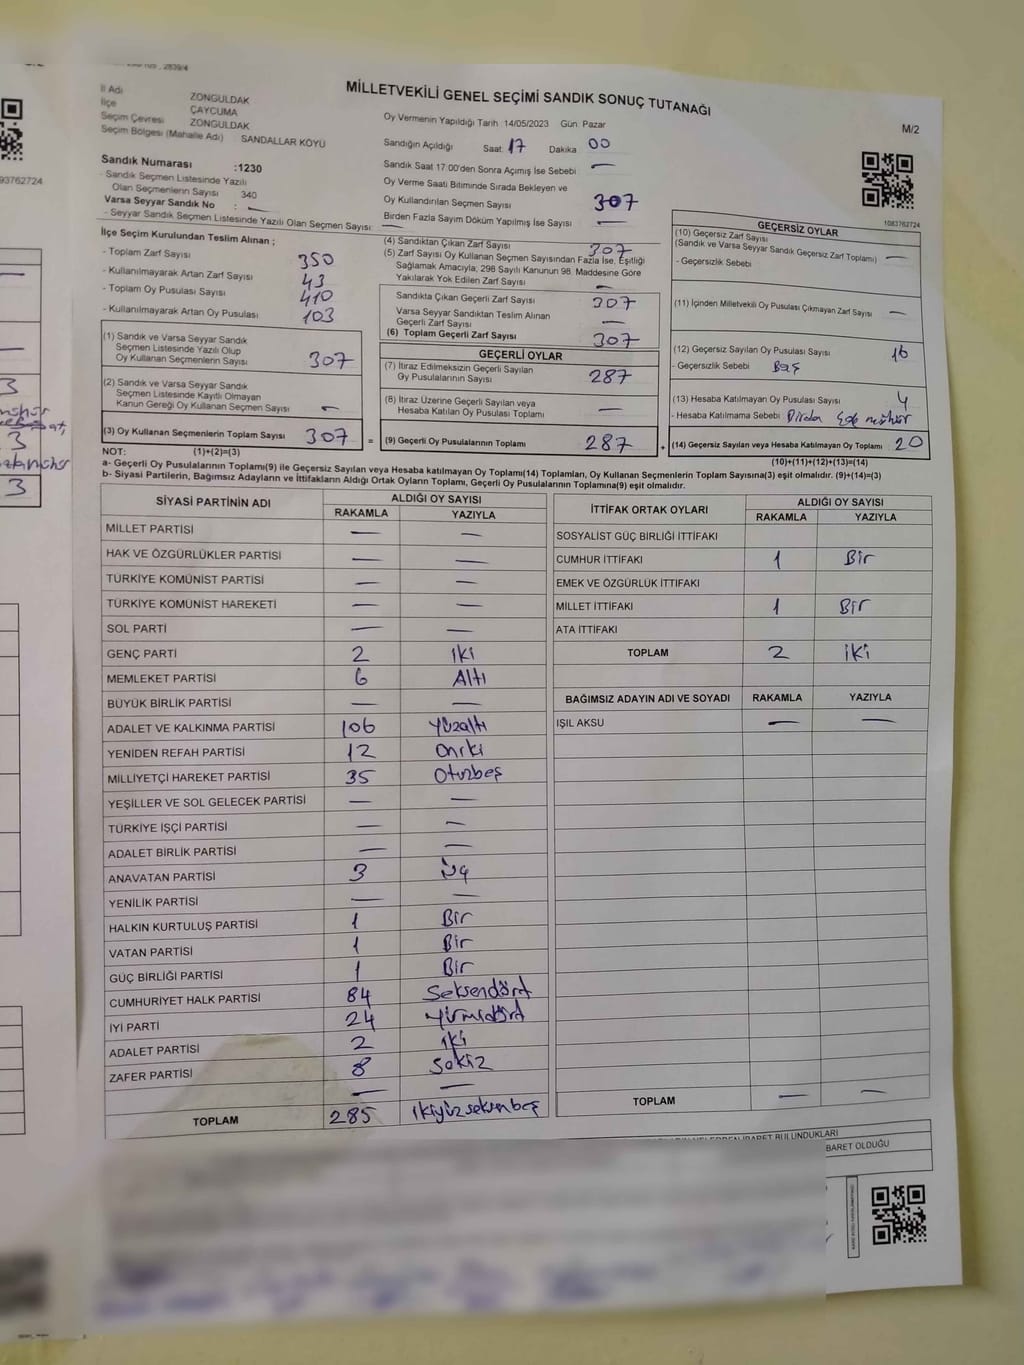 2839/4
MİLLETVEKİLİ GENEL SEÇİMİ SANDIK SONUÇ TUTANAĞI
M/2
İl Adı ZONGULDAK
İlçe ÇAYCUMA
Seçim Çevresi ZONGULDAK
Seçim Bölgesi (Mahalle Adı) SANDALLAR KÖYÜ
Oy Vermenin Yapıldığı Tarih :14/05/2023 Gün: Pazar
Sandığın Açıldığı Saat: 17 Dakika 00
Sandık Saat 17:00'den Sonra Açılmış İse Sebebi —
Oy Verme Saati Bitiminde Sırada Bekleyen ve
Oy Kullandırılan Seçmen Sayısı 307
Birden Fazla Sayım Döküm Yapılmış İse Sayısı —
Sandık Numarası :1230
- Sandık Seçmen Listesinde Yazılı
Olan Seçmenlerin Sayısı 340
Varsa Seyyar Sandık No : —
- Seyyar Sandık Seçmen Listesinde Yazılı Olan Seçmen Sayısı: —
1083762724
93762724
İlçe Seçim Kurulundan Teslim Alınan ;
- Toplam Zarf Sayısı 350
- Kullanılmayarak Artan Zarf Sayısı 43
- Toplam Oy Pusulası Sayısı 410
- Kullanılmayarak Artan Oy Pusulası 103
(1) Sandık ve Varsa Seyyar Sandık
Seçmen Listesinde Yazılı Olup
Oy Kullanan Seçmenlerin Sayısı 307
(2) Sandık ve Varsa Seyyar Sandık
Seçmen Listesinde Kayıtlı Olmayan
Kanun Gereği Oy Kullanan Seçmen Sayısı —
(3) Oy Kullanan Seçmenlerin Toplam Sayısı 307 =
(4) Sandıktan Çıkan Zarf Sayısı 307
(5) Zarf Sayısı Oy Kullanan Seçmen Sayısından Fazla İse, Eşitliği
Sağlamak Amacıyla, 298 Sayılı Kanunun 98. Maddesine Göre
Yakılarak Yok Edilen Zarf Sayısı —
Sandıkta Çıkan Geçerli Zarf Sayısı 307
Varsa Seyyar Sandıktan Teslim Alınan
Geçerli Zarf Sayısı —
(6) Toplam Geçerli Zarf Sayısı 307
GEÇERLİ OYLAR
(7) İtiraz Edilmeksizin Geçerli Sayılan
Oy Pusulalarının Sayısı 287
(8) İtiraz Üzerine Geçerli Sayılan veya
Hesaba Katılan Oy Pusulası Toplamı —
(9) Geçerli Oy Pusulalarının Toplamı 287 +
GEÇERSİZ OYLAR
(10) Geçersiz Zarf Sayısı
(Sandık ve Varsa Seyyar Sandık Geçersiz Zarf Toplamı) —
- Geçersizlik Sebebi
(11) İçinden Milletvekili Oy Pusulası Çıkmayan Zarf Sayısı —
(12) Geçersiz Sayılan Oy Pusulası Sayısı 16
- Geçersizlik Sebebi Boş
(13) Hesaba Katılmayan Oy Pusulası Sayısı 4
- Hesaba Katılmama Sebebi
(14) Geçersiz Sayılan veya Hesaba Katılmayan Oy Toplamı 20
NOT: (1)+(2)=(3) (10)+(11)+(12)+(13)=(14)
a- Geçerli Oy Pusulalarının Toplamı(9) ile Geçersiz Sayılan veya Hesaba katılmayan Oy Toplamı(14) Toplamları, Oy Kullanan Seçmenlerin Toplam Sayısına(3) eşit olmalıdır. (9)+(14)=(3)
b- Siyasi Partilerin, Bağımsız Adayların ve İttifakların Aldığı Ortak Oyların Toplamı, Geçerli Oy Pusulalarının Toplamına(9) eşit olmalıdır.
SİYASİ PARTİNİN ADI ALDIĞI OY SAYISI
RAKAMLA YAZIYLA
MİLLET PARTİSİ — —
HAK VE ÖZGÜRLÜKLER PARTİSİ — —
TÜRKİYE KOMÜNİST PARTİSİ — —
TÜRKİYE KOMÜNİST HAREKETİ — —
SOL PARTİ — —
GENÇ PARTİ 2 iki
MEMLEKET PARTİSİ 6 Altı
BÜYÜK BİRLİK PARTİSİ — —
ADALET VE KALKINMA PARTİSİ 106 Yüzaltı
YENİDEN REFAH PARTİSİ 12 Oniki
MİLLİYETÇİ HAREKET PARTİSİ 35 Otuzbeş
YEŞİLLER VE SOL GELECEK PARTİSİ — —
TÜRKİYE İŞÇİ PARTİSİ — —
ADALET BİRLİK PARTİSİ — —
ANAVATAN PARTİSİ 3 Üç
YENİLİK PARTİSİ — —
HALKIN KURTULUŞ PARTİSİ 1 Bir
VATAN PARTİSİ 1 Bir
GÜÇ BİRLİĞİ PARTİSİ 1 Bir
CUMHURİYET HALK PARTİSİ 84 Seksendört
İYİ PARTİ 24 Yirmidört
ADALET PARTİSİ 2 iki
ZAFER PARTİSİ 8 Sekiz
— —
TOPLAM 285 ikiyüzseksenbeş
İTTİFAK ORTAK OYLARI ALDIĞI OY SAYISI
RAKAMLA YAZIYLA
SOSYALİST GÜÇ BİRLİĞİ İTTİFAKI
CUMHUR İTTİFAKI 1 Bir
EMEK VE ÖZGÜRLÜK İTTİFAKI
MİLLET İTTİFAKI 1 Bir
ATA İTTİFAKI
TOPLAM 2 iki
BAĞIMSIZ ADAYIN ADI VE SOYADI RAKAMLA YAZIYLA
IŞIL AKSU — —
TOPLAM — —
İBARET BULUNDUKLARI
BARET OLDUĞU
3
3
3